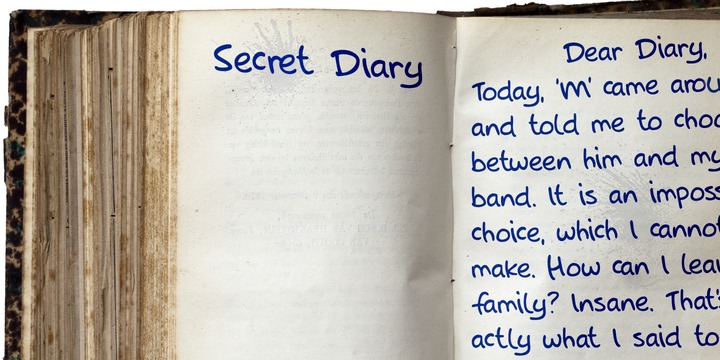 Secret Diary
Dear Diary,
Today, 'M' came arou
and told me to choo
between him and my
band. It is an imposs
choice, which I cannot
make. How can I lea
family? Insane. That's
actly what I said to